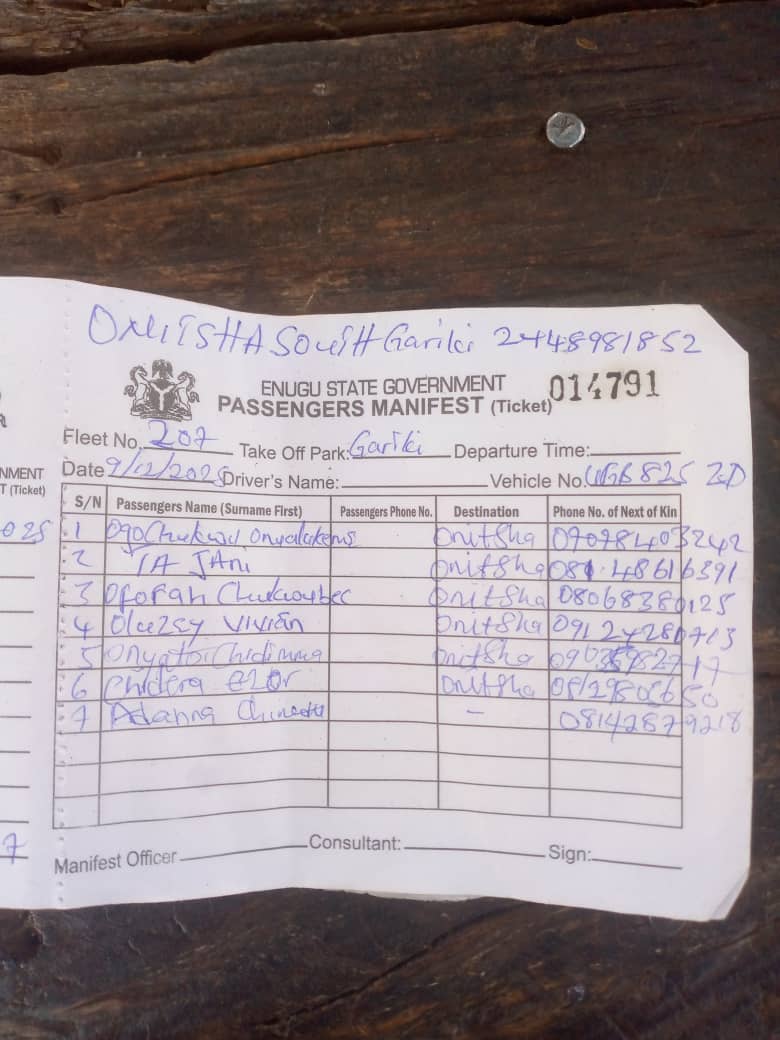 ONITSHA SOUTH Gariki 2448981852
ENUGU STATE GOVERNMENT 014791
PASSENGERS MANIFEST (Ticket)
Fleet No. 207 Take Off Park: Gariki Departure Time:
Date 9/12/2025 Driver's Name: Vehicle No. 825 ZD
S/N Passengers Name (Surname First) Passengers Phone No. Destination Phone No. of Next of Kin
1 Ogochukwu Onitsha 07078403242
2 JA JANi Onitsha 081.48616391
3 Onitsha 08068380125
4 Vivian Onitsha 09124280713
5 Chidimma Onitsha
6 Chidera ezor Onitsha
7 Adanna - 08142879218
Manifest Officer Consultant: Sign:
NMENT
T (Ticket)
025
7